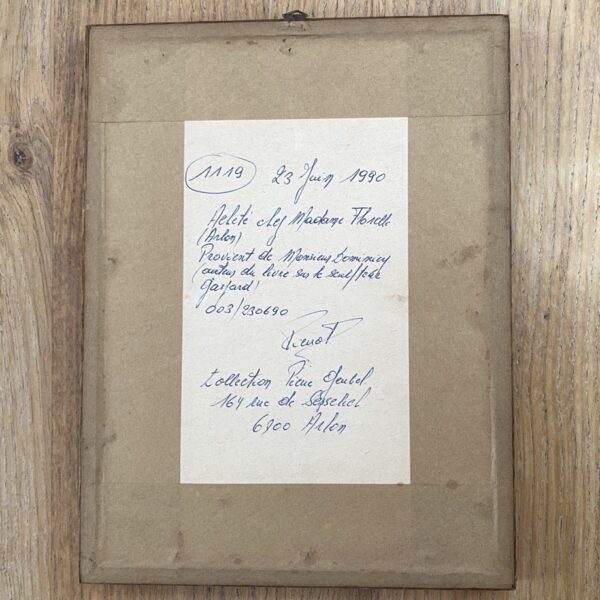 1119 23 Juin 1990
Acheté chez Madame Florelle
(Arlon)
Provient de Monsieur Dominicy
(auteur du livre sur le sculpteur
Gaspard)
003/230690
Pierrot
Collection Pierre
164 rue de
6700 Arlon